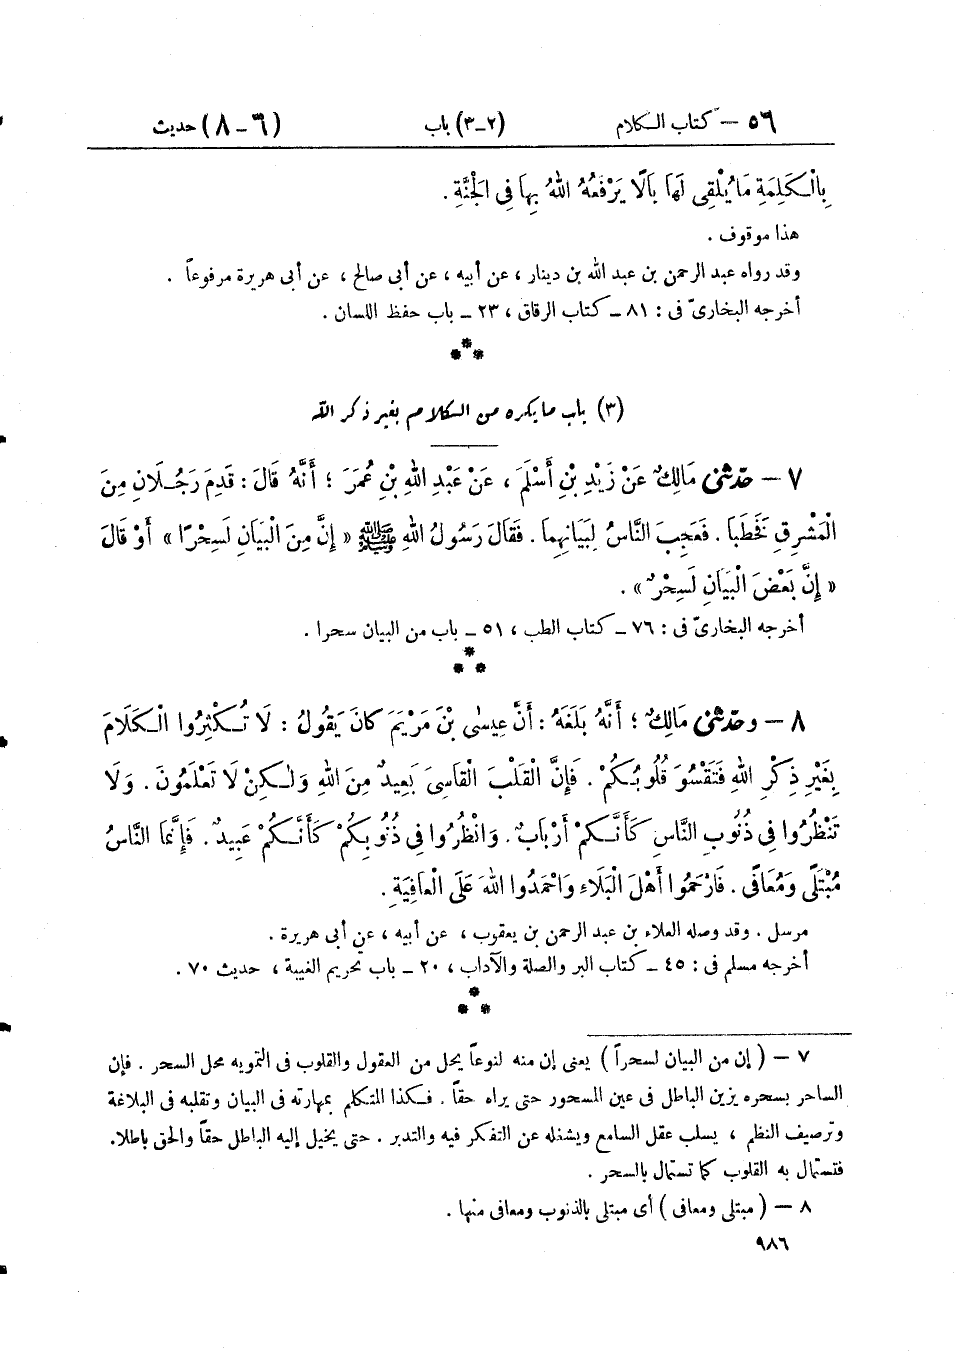 ٥٦ – كتاب الكلام (٢-٣) باب (٦-٨) حديث
بِالْكَلِمَةِ مَا يُلْقِى لَهَا بَالًا يَرْفَعُهُ اللهُ بِهَا فِى الْجَنَّةِ .
هذا موقوف .
وقد رواه عبد الرحمن بن عبد الله بن دينار ، عن أبيه ، عن أبى صالح ، عن أبى هريرة مرفوعاً .
أخرجه البخارىّ فى : ٨١ – كتاب الرقاق ، ٢٣ – باب حفظ اللسان .
***
(٣) باب ما يكره من الكلام بغير ذكر الله
٧ – حدّثنى مَالِكٌ عَنْ زَيْدِ بْنِ أَسْلَمَ ، عَنْ عَبْدِ اللهِ بْنِ عُمَرَ ؛ أَنَّهُ قَالَ : قَدِمَ رَجُلَانِ مِنَ
الْمَشْرِقِ فَخَطَبَا . فَعَجِبَ النَّاسُ لِبَيَانِهِمَا . فَقَالَ رَسُولُ اللهِ ﷺ « إِنَّ مِنَ الْبَيَانِ لَسِحْرًا » أَوْ قَالَ
« إِنَّ بَعْضَ الْبَيَانِ لَسِحْرٌ » .
أخرجه البخارىّ فى : ٧٦ – كتاب الطب ، ٥١ – باب من البيان سحرا .
***
٨ – وحدّثنى مَالِكٌ ؛ أَنَّهُ بَلَغَهُ : أَنَّ عِيسٰى بْنَ مَرْيَمَ كَانَ يَقُولُ : لَا تُكْثِرُوا الْكَلَامَ
بِغَيْرِ ذِكْرِ اللهِ فَتَقْسُوَ قُلُوبُكُمْ . فَإِنَّ الْقَلْبَ الْقَاسِىَ بَعِيدٌ مِنَ اللهِ وَلٰكِنْ لَا تَعْلَمُونَ . وَلَا
تَنْظُرُوا فِى ذُنُوبِ النَّاسِ كَأَنَّكُمْ أَرْبَابٌ . وَانْظُرُوا فِى ذُنُوبِكُمْ كَأَنَّكُمْ عَبِيدٌ . فَإِنَّمَا النَّاسُ
مُبْتَلًى وَمُعَافًى . فَارْحَمُوا أَهْلَ الْبَلَاءِ وَاحْمَدُوا اللهَ عَلَى الْعَافِيَةِ .
مرسل . وقد وصله العلاء بن عبد الرحمن بن يعقوب ، عن أبيه ، عن أبى هريرة .
أخرجه مسلم فى : ٤٥ – كتاب البر والصلة والآداب ، ٢٠ – باب تحريم الغيبة ، حديث ٧٠ .
***
٧ – ( إن من البيان لسحراً ) يعنى إن منه لنوعاً يحل من العقول والقلوب فى التمويه محل السحر . فإن
الساحر بسحره يزين الباطل فى عين المسحور حتى يراه حقاً . فكذا المتكلم بمهارته فى البيان وتقلبه فى البلاغة
وترصيف النظم ، يسلب عقل السامع ويشغله عن التفكر فيه والتدبر . حتى يخيل إليه الباطل حقاً والحق باطلا.
فتستمال به القلوب كما تستمال بالسحر .
٨ – ( مبتلى ومعافى ) أى مبتلى بالذنوب ومعافى منها .
٩٨٦